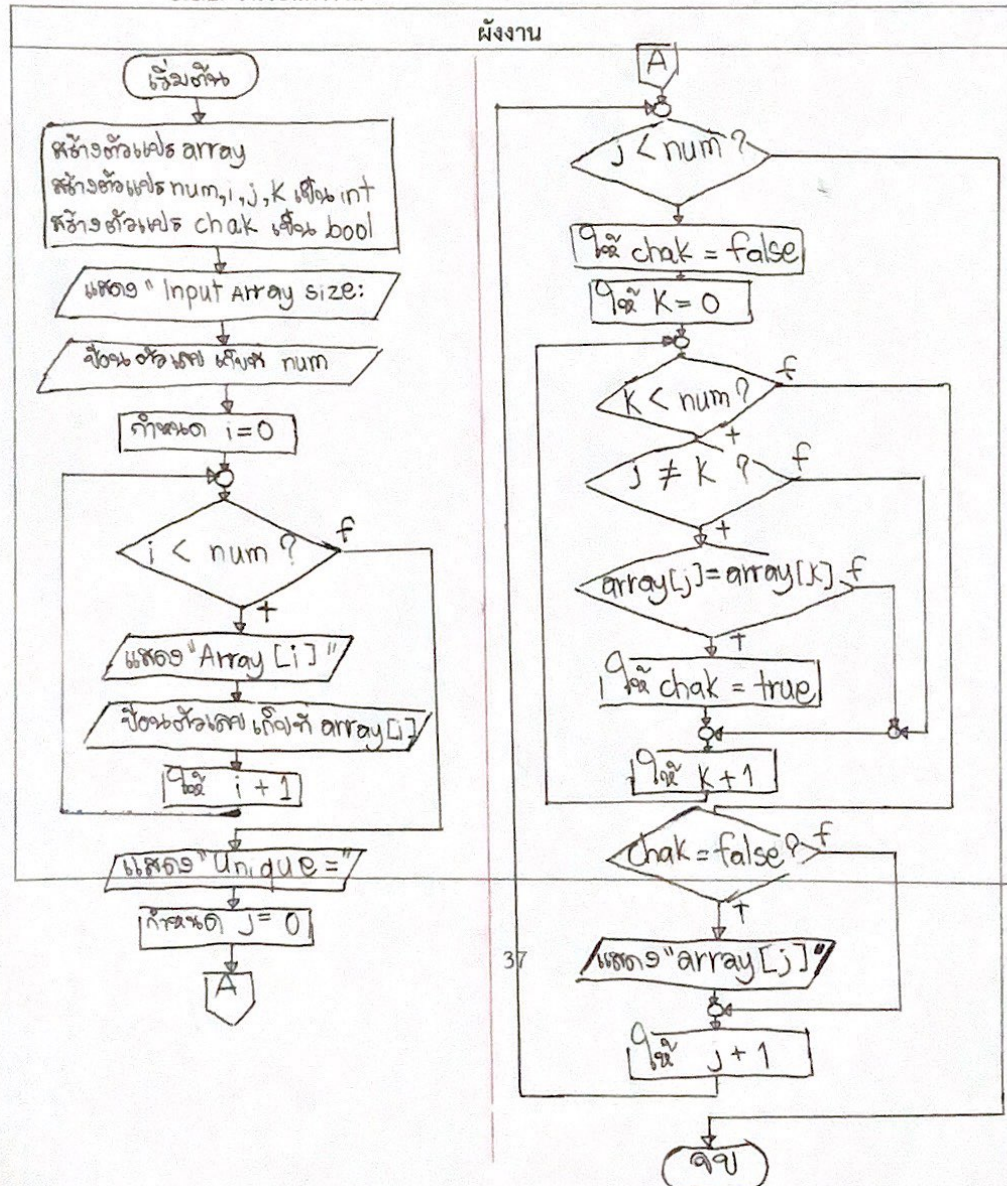 ผังงาน
เริ่มต้น
สร้างตัวแปร array
สร้างตัวแปร num, i, j, k เป็น int
สร้างตัวแปร chak เป็น bool
แสดง " Input Array size:
ป้อนตัวเลข เก็บที่ num
กำหนด i=0
i < num ?
f
t
แสดง "Array [i] "
ป้อนตัวเลข เก็บที่ array[i]
ให้ i + 1
แสดง "Unique ="
กำหนด j = 0
A
A
j < num ?
ให้ chak = false
ให้ k = 0
k < num ?
f
t
j ≠ k ?
f
t
array[j]=array[k]
f
T
ให้ chak = true
ให้ k+1
chak = false ?
f
T
แสดง "array [j] "
37
ให้ j + 1
จบ